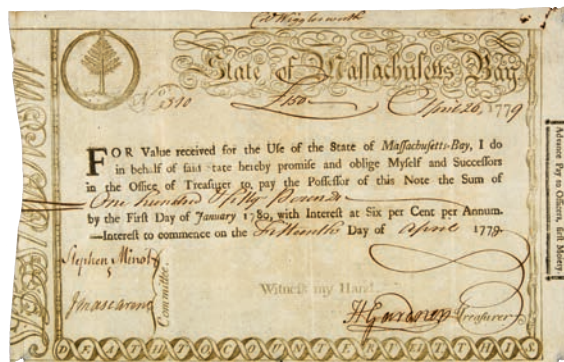 Col Wigglesworth
State of Massachusetts Bay
No 310 £150 April 26, 1779
FOR Value received for the Use of the State of Massachusetts-Bay, I do
in behalf of said State hereby promise and oblige Myself and Successors
in the Office of Treasurer to pay the Possessor of this Note the Sum of
One hundred & fifty Pounds
by the First Day of January 1780, with Interest at Six per Cent per Annum.
—Interest to commence on the Fifteenth Day of April 1779.
Stephen Minot
Committee.
Witness my Hand
J Mascarene
H Gardner Treasurer
DEATH TO COUNTERFEIT THIS
Advance Pay to Officers, first Moiety.